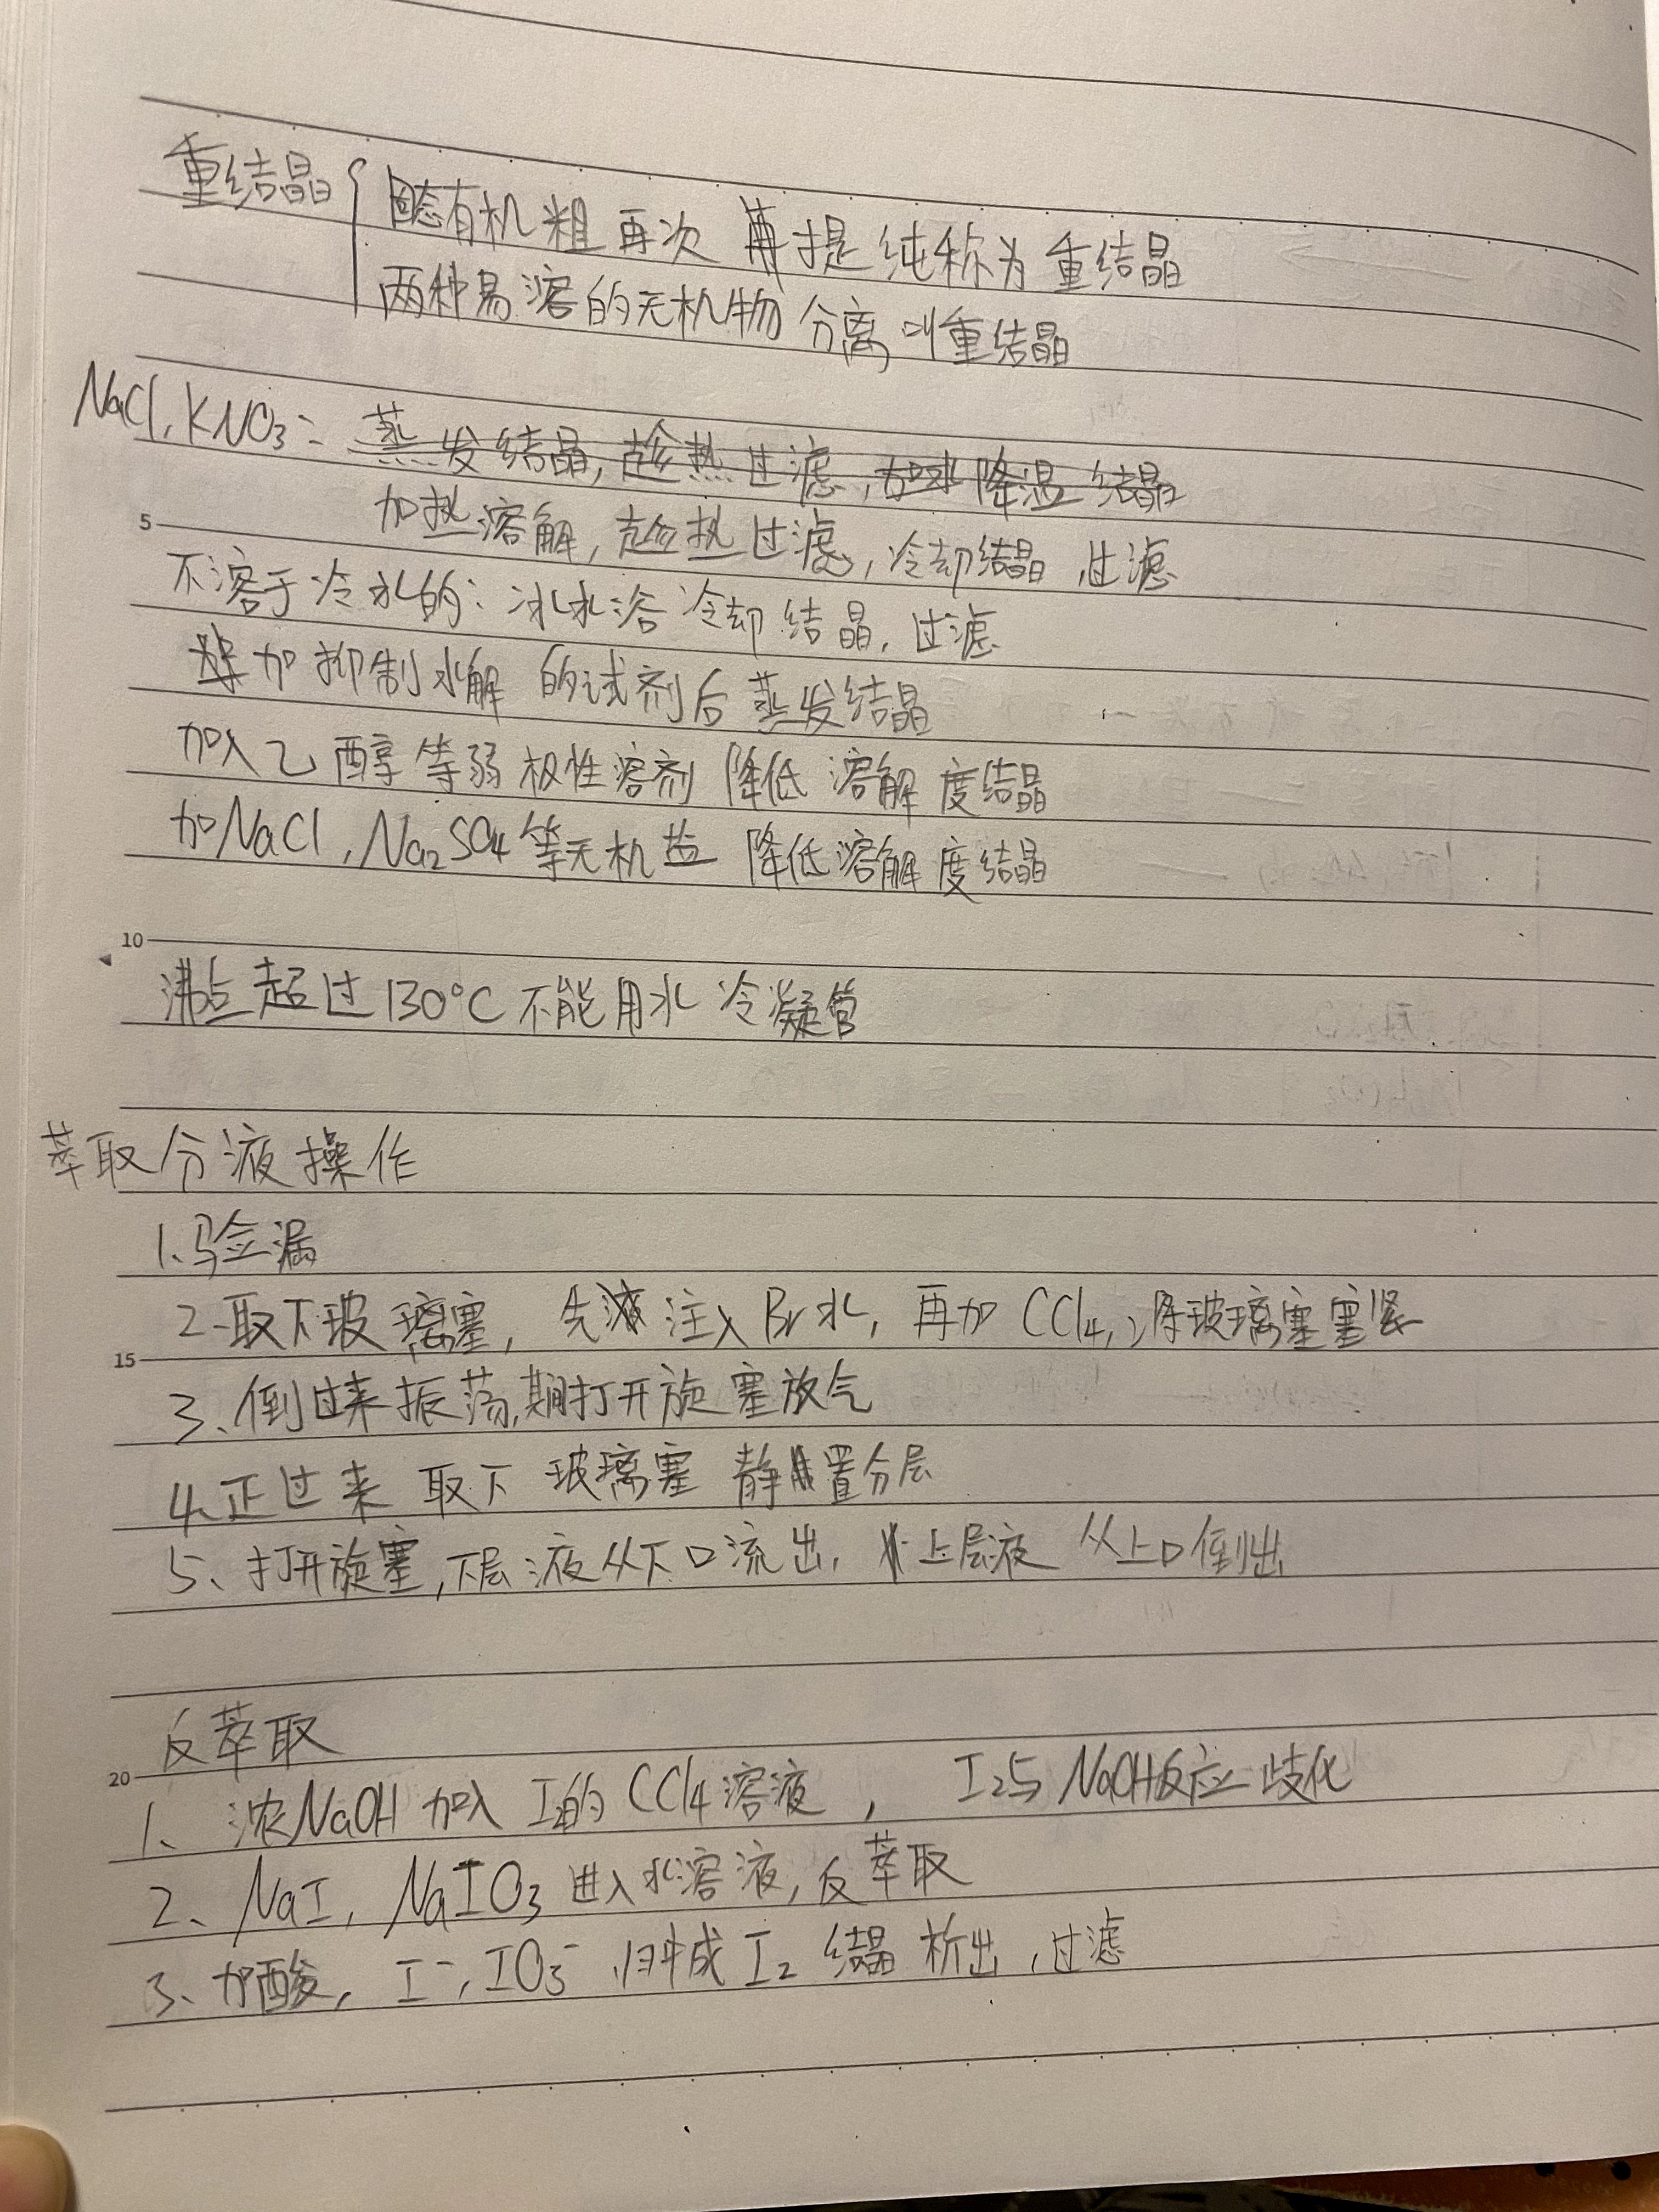 重结晶
固态有机粗再次 再提纯称为重结晶
两种易溶的无机物分离叫重结晶
NaCl,KNO₃: 蒸发结晶,趁热过滤,加水降温结晶
5
加热溶解,趁热过滤,冷却结晶,过滤
不溶于冷水的:冰水浴冷却结晶,过滤
加抑制水解的试剂后蒸发结晶
加入乙醇等弱极性溶剂降低溶解度结晶
加NaCl,Na₂SO₄等无机盐降低溶解度结晶
10
沸点超过130°C不能用水冷凝管
萃取分液操作
1、验漏
2、取下玻璃塞,先注入Br水,再加CCl₄,玻璃塞塞紧
15
3、倒过来振荡,期打开旋塞放气
4、正过来 取下玻璃塞 静置分层
5、打开旋塞,下层液从下口流出,上层液从上口倒出
反萃取
20
1、浓NaOH加入I₂的CCl₄溶液, I₂与NaOH反应歧化
2、NaI,NaIO₃进入水溶液,反萃取
3、加酸,I⁻,IO₃⁻归中成I₂结晶析出,过滤